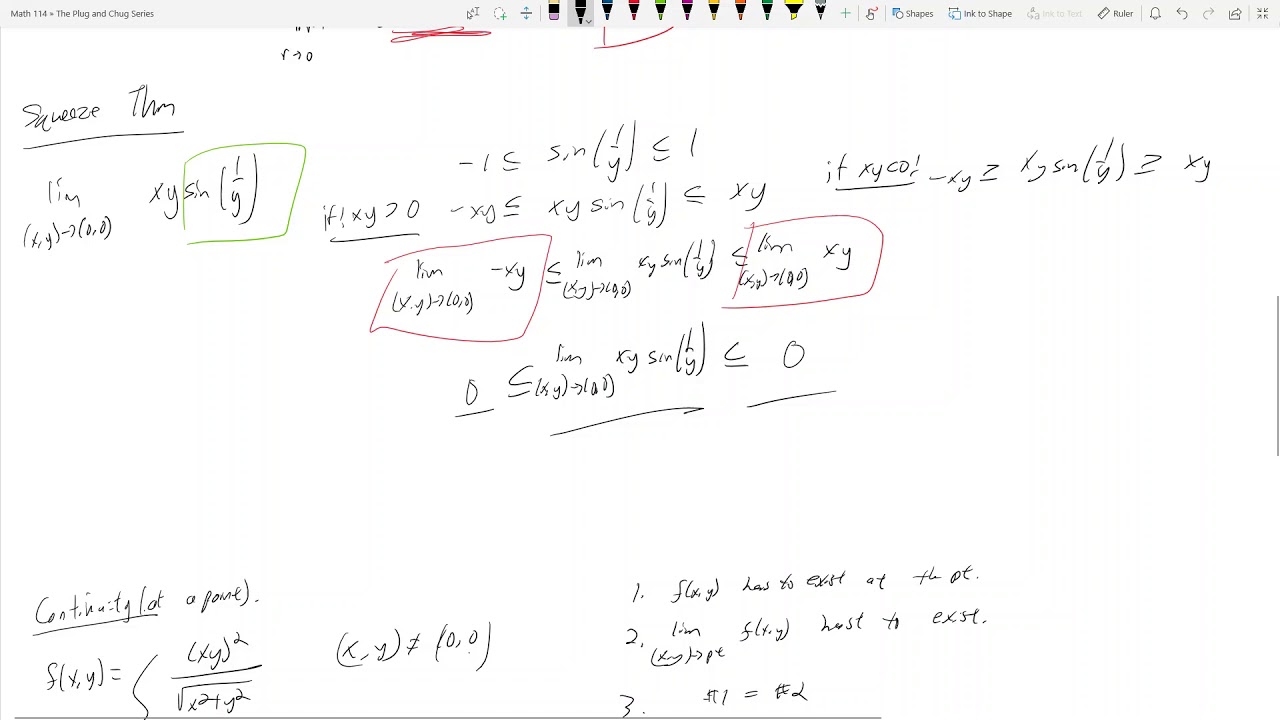 Math 114 » The Plug and Chug Series
Shapes Ink to Shape Ink to Text Ruler
r→0
Squeeze Thm
lim (x,y)→(0,0) xy sin(1/y)
-1 ≤ sin(1/y) ≤ 1
if! xy>0 -xy ≤ xy sin(1/y) ≤ xy
if xy<0! -xy ≥ xy sin(1/y) ≥ xy
lim (x,y)→(0,0) -xy ≤ lim (x,y)→(0,0) xy sin(1/y) ≤ lim (x,y)→(0,0) xy
0 ≤ lim (x,y)→(0,0) xy sin(1/y) ≤ 0
Continuity (at a point).
f(x,y) = { (xy)² / √x²+y² (x,y) ≠ (0,0)
1. f(x,y) has to exist at the pt.
2. lim (x,y)→pt f(x,y) hast to exist.
3. #1 = #2